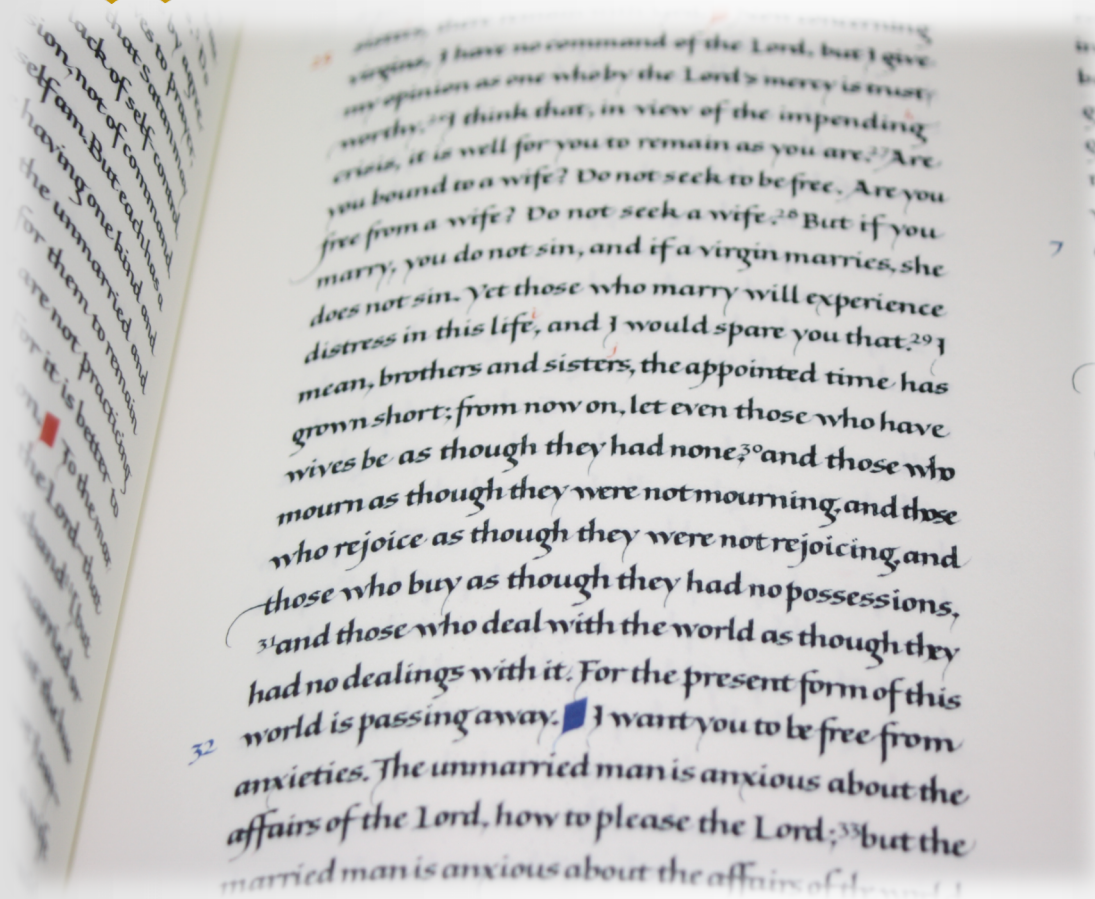 sion, not of command.
self am. But each has a
having one kind and
the unmarried and
for them to remain
are not practicing
for it is better to
To the mar
the Lord—that
25
virgins, I have no command of the Lord, but I give
my opinion as one who by the Lord's mercy is trust
worthy. 26 I think that, in view of the impending
crisis, it is well for you to remain as you are. 27 Are
you bound to a wife? Do not seek to be free. Are you
free from a wife? Do not seek a wife. 28 But if you
marry, you do not sin, and if a virgin marries, she
does not sin. Yet those who marry will experience
distress in this life, and I would spare you that. 29 I
mean, brothers and sisters, the appointed time has
grown short; from now on, let even those who have
wives be as though they had none, 30 and those who
mourn as though they were not mourning, and those
who rejoice as though they were not rejoicing, and
those who buy as though they had no possessions,
31 and those who deal with the world as though they
had no dealings with it. For the present form of this
world is passing away. I want you to be free from
32
anxieties. The unmarried man is anxious about the
affairs of the Lord, how to please the Lord; 33 but the
married man is anxious about the affairs of the world
7